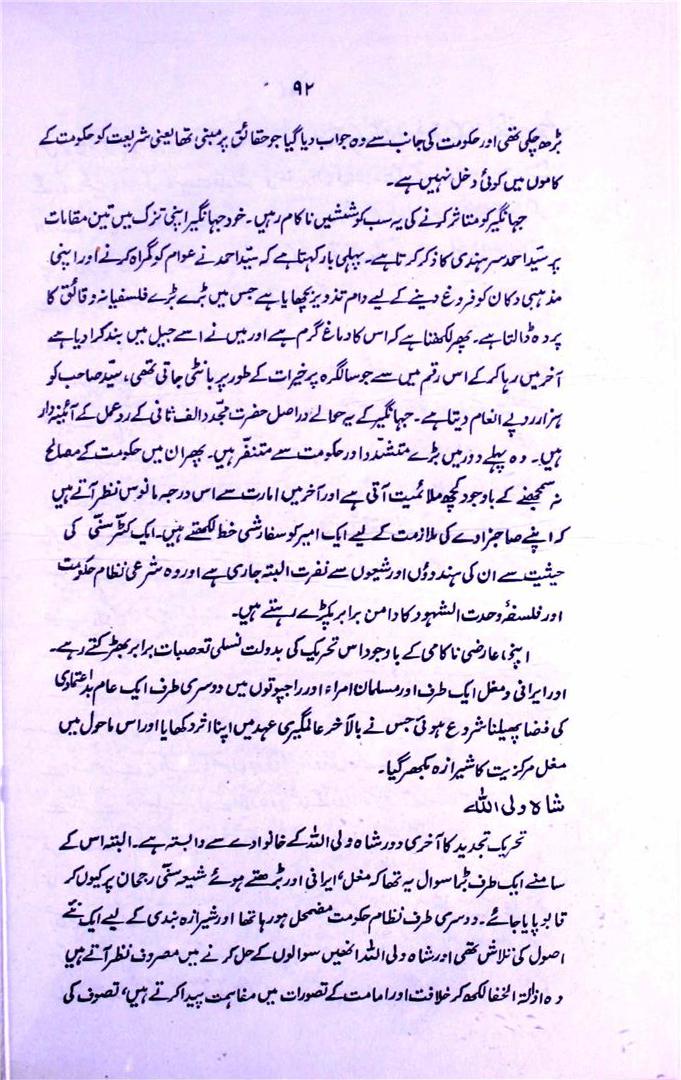 ۹۲
بڑھ چکی تھی اور حکومت کی جانب سے وہ جواب دیا گیا جو حقائق پر مبنی تھا یعنی شریعت کو حکومت کے
کاموں میں کوئی دخل نہیں ہے۔
جہانگیر کو متاثر کرنے کی یہ سب کوششیں ناکام رہیں۔ خود جہانگیر اپنی تزک میں تین مقامات
پر سیّد احمد سرہندی کا ذکر کرتا ہے۔ پہلی بار کہتا ہے کہ سیّد احمد نے عوام کو گمراہ کرنے اور اپنی
مذہبی دکان کو فروغ دینے کے لیے دام تذویر بچھایا ہے جس میں بڑے بڑے فلسفیانہ دقائق کا
پردہ ڈالتا ہے۔ پھر لکھتا ہے کہ اس کا دماغ گرم ہے اور میں نے اسے جیل میں بند کرا دیا ہے
آخر میں رہا کر کے اس رقم میں سے جو سالگرہ پر خیرات کے طور پر بانٹی جاتی تھی، سیّد صاحب کو
ہزار روپے انعام دیتا ہے۔ جہانگیر کے یہ حوالے دراصل حضرت مجدد الف ثانی کے ردعمل کے آئینہ دار
ہیں۔ وہ پہلے دور میں بڑے متشدد اور حکومت سے متنفر ہیں۔ پھر ان میں حکومت کے مصالح
نہ سمجھنے کے باوجود کچھ ملائمیت آتی ہے اور آخر میں امارت سے اس درجہ مانوس نظر آتے ہیں
کہ اپنے صاحبزادے کی ملازمت کے لیے ایک امیر کو سفارشی خط لکھتے ہیں۔ ایک کٹّر سنّی کی
حیثیت سے ان کی ہندوؤں اور شیعوں سے نفرت البتہ جاری ہے اور وہ شرعی نظام حکومت
اور فلسفۂ وحدت الشہود کا دامن برابر پکڑے رہتے ہیں۔
اپنی عارضی ناکامی کے باوجود اس تحریک کی بدولت نسلی تعصبات برابر بھڑکتے رہے۔
اور ایرانی و مغل ایک طرف اور مسلمان امراء اور راجپوتوں میں دوسری طرف ایک عام بد اعتمادی
کی فضا پھیلنا شروع ہوئی جس نے بالآخر عالمگیری عہد میں اپنا اثر دکھایا اور اس ماحول میں
مغل مرکزیت کا شیرازہ بکھر گیا۔
شاہ ولی اللہ
تحریک تجدید کا آخری دور شاہ ولی اللہ کے خانوادے سے وابستہ ہے۔ البتہ اس کے
سامنے ایک طرف بڑا سوال یہ تھا کہ مغل، ایرانی اور بڑھتے ہوئے شیعہ سنّی رجحان پر کیوں کر
قابو پایا جائے۔ دوسری طرف نظام حکومت مضمحل ہو رہا تھا اور شیرازہ بندی کے لیے ایک نئے
اصول کی تلاش تھی اور شاہ ولی اللہ انھیں سوالوں کے حل کرنے میں مصروف نظر آتے ہیں
وہ ازالۃ الخفا لکھ کر خلافت اور امامت کے تصورات میں مفاہمت پیدا کرتے ہیں، تصوف کی